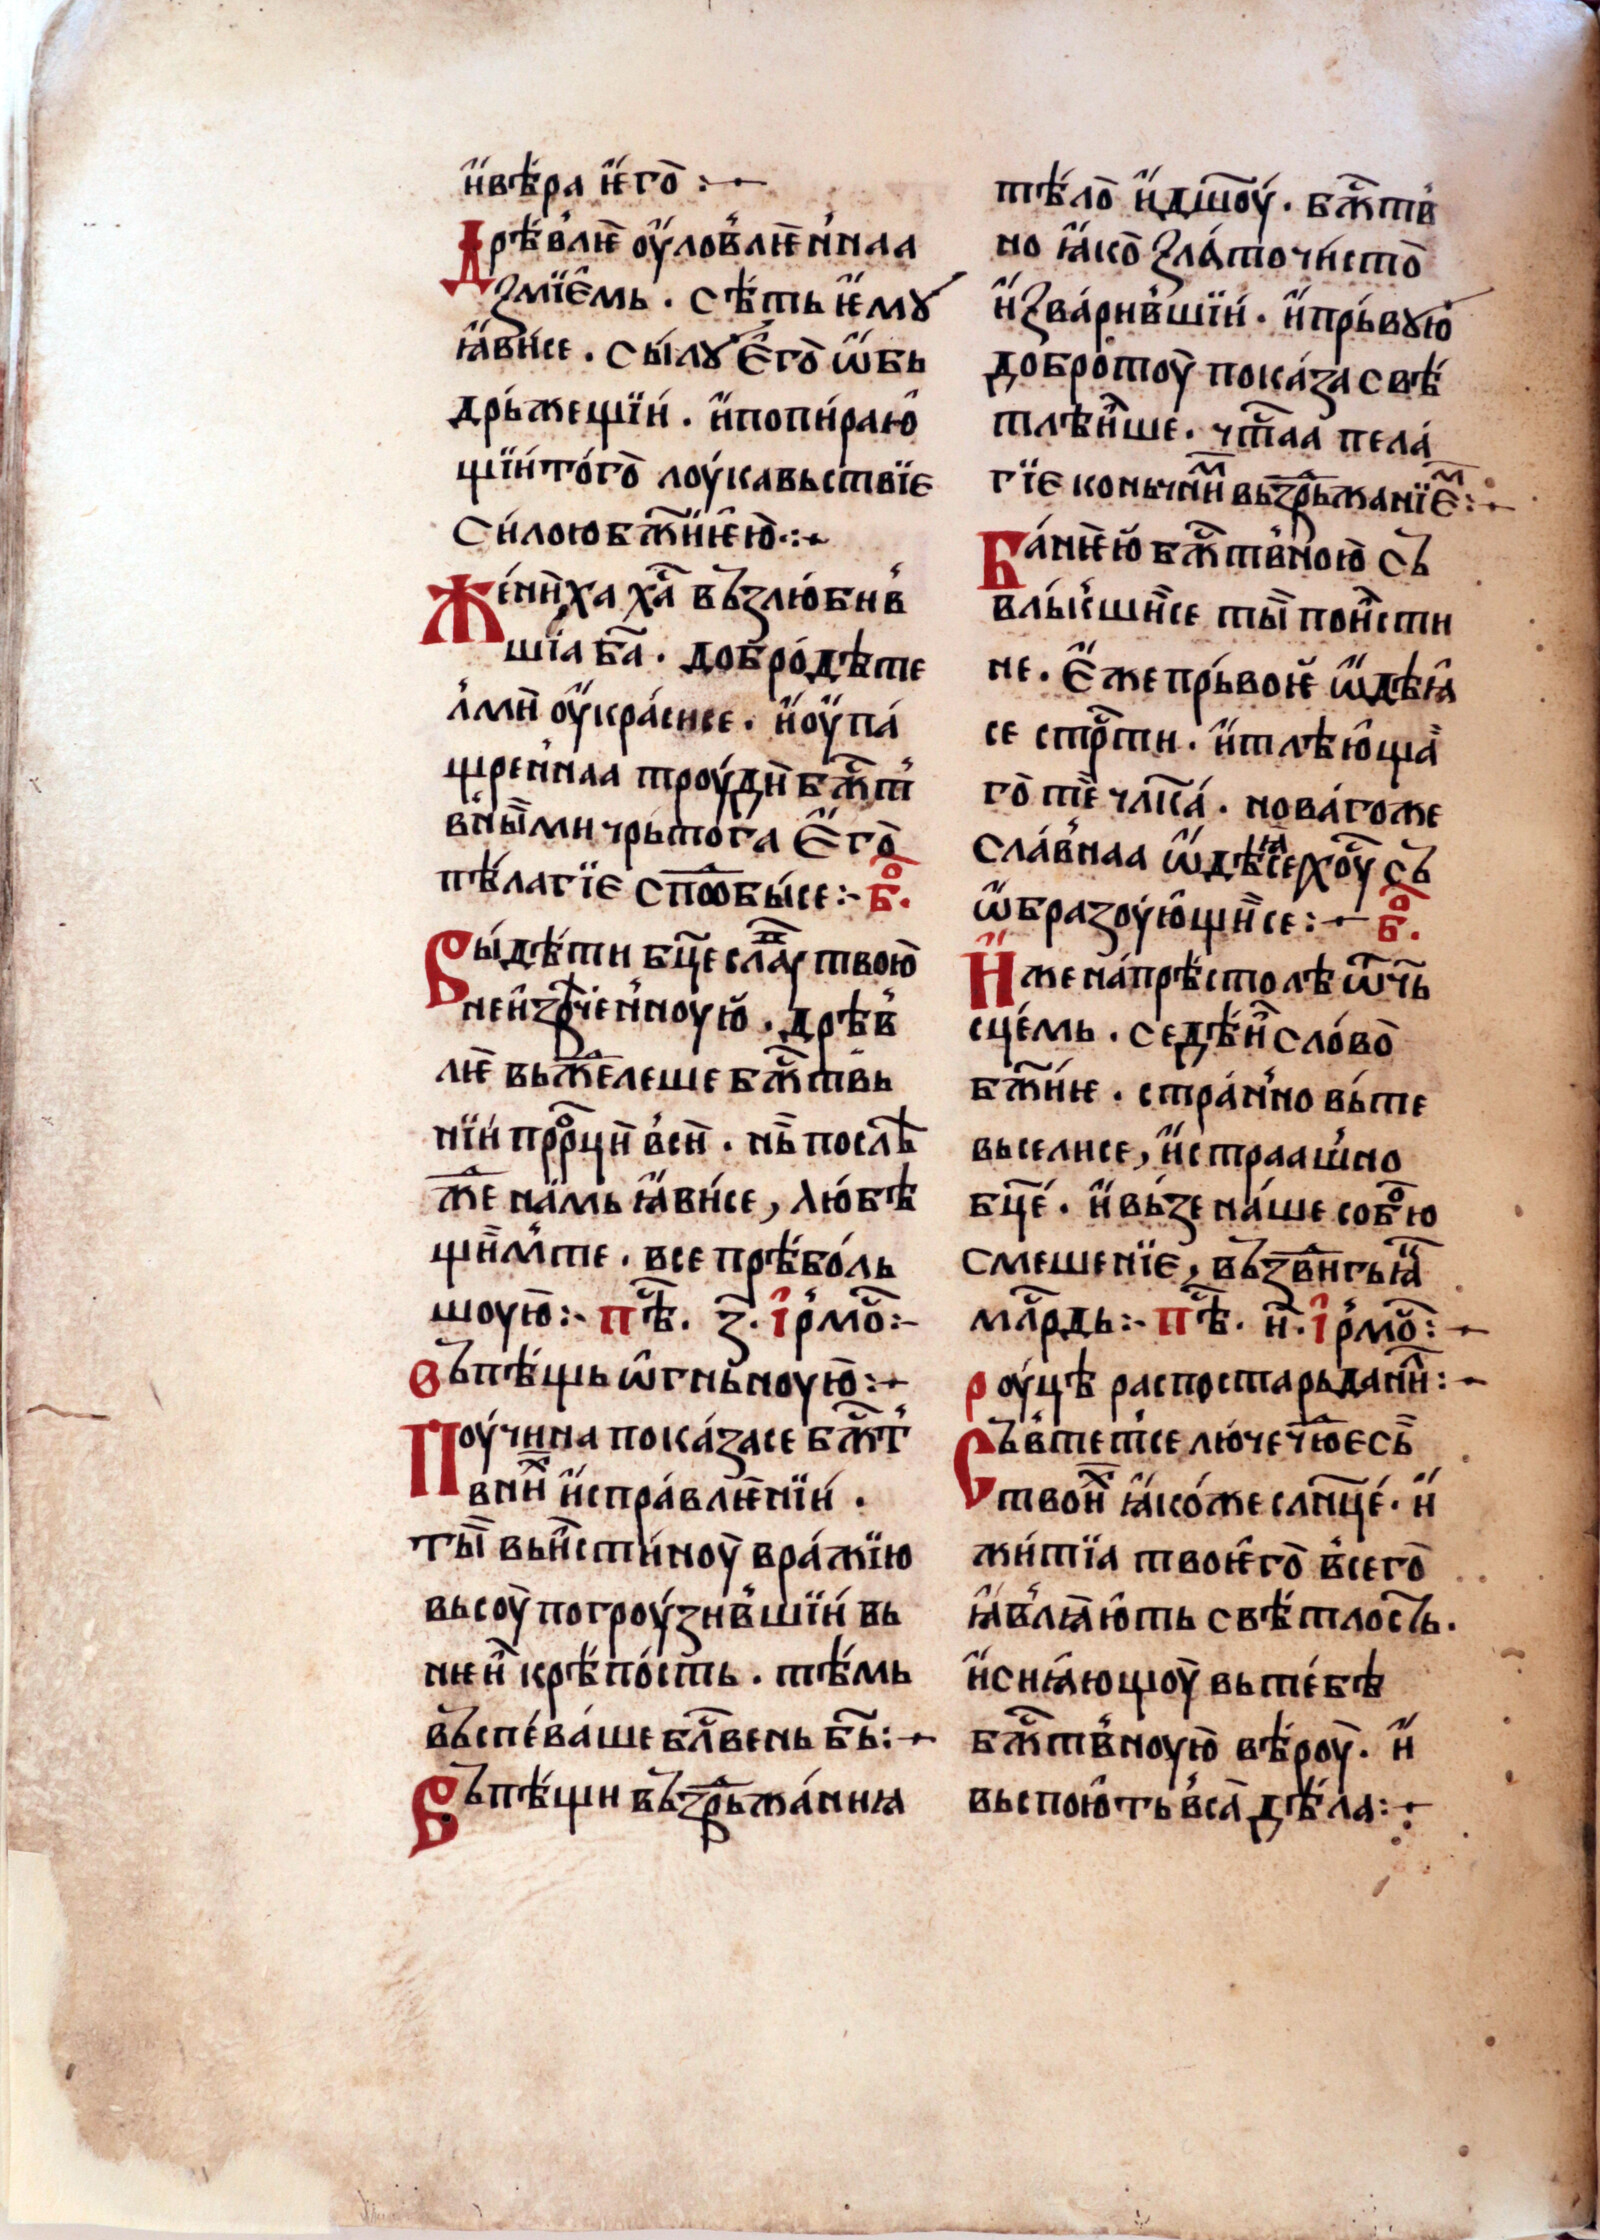 и҆вѣ́ра ѥ҆го̀ :~
Дрѣ́влѥ оу҆ловлѥннаа
ꙁмїе҆мь . сѣ́ть ѥ҆мꙋ
ꙗ҆ви́се . сы́лꙋ е҆го̀ ѡ҆бь
дрь́жещїи . и҆попи́раю҆
щїи́то́го̀ лоу́кавьствїе
си́лою бж҃и́ѥю :~
Же́ниха ха҃ въꙁлю́бив
шїа ба҃ . добро́дѣте
лми̏ оу҆кра́сисе . и҆оу҆па́
щреннаа троу́ди̏ бжⷭ҇т
вны́ми чрьто́га е҆го̀
пѣ́лагїе спⷪ҇добы́се :- бо҃ .
Вы́дѣти бц҃е сла́вꙋ твою̀
неиꙁреченноую . дрѣв
лѥ вьжⷣелеше бжⷭ҇твь
нїи́ прⷪ҇рци̏ вси̏ . нн҃ѣ послѣ
жⷣе на́мь ꙗ҆ви́се , лю́бѣ
щи̏мте . все прѣ́бо́ль
шоую̀ :- пⷭ҇ѣ . ꙁ҃ . і҆рмо́ⷭ :-
Въпѣ́щь ѡ҆гньноую̀ :~
Поу́чина пока́ꙁасе бжⷭ҇т
вниⷯ и҆спра́влѥнїи́ .
ты̏ вьи́сти́ноу̀ вра́жїю
высоу̀ погроу́ꙁи́вшїи́ вь
ниѥи̏ крѣ́по́сть . тѣ́мь
въспе́ва́ше блⷭ҇вень бь҃ :~
Въпѣ́щи въꙁдрьжа́ниꙗ
тѣ́ло̀ и҆дш҃оу́ . бжⷭ҇тв
но ꙗ҆ко̀ ꙁла́то чи́сто̀
и҆ꙁва́ри́вшїи́ . и҆прь́вꙋю
добро́тоу̀ пока́ꙁа свѣ́
тлѣи̏ше . чтⷭ҇аа пела́
гїе коньчниⷨ вьꙁдрьжанїеⷨ :~
Ба́нѥю бжⷭ҇твною̀ съ
влы́кши̏се ты̏ пои́сти
не . е҆же прь́воѥ ѡ҆дѣꙗ
се стрⷭ҇ти . и҆тлѣю҆ща̏
го̀ те чл҃ка́ . нова́гоже
сла́внаа ѡ҆дѣꙗсе хоу҃ съ
ѡ҆браꙁоу́ющи̏се :~ бо҃ .
И҆же на́прѣ́столѣ ѿчь
сце́мь . седѣ́и̏ сло́во̀
бж҃и́ѥ . стра́нно вь́те
вьселисе , и҆страашно
бц҃е́ . и҆вь́ꙁе на́ше собо́ю
смешенїе , въꙁви́гьꙗ
млⷭ҇рдь :- пⷭ҇ѣ . и҃ . і҆рмо́ⷭ :~
Роу́цѣ распростарь дани́и̏ :~
Съвтетсе лю́че чтⷭ҇ю́е сь̏
твоиⷯ ꙗ҆ко́же слн҃це́ . и҆
жи́тїа твоѥ҆го̀ всего̀
ꙗ҆влꙗю҆ть свѣ́тлость .
и҆сиꙗ́ющоу̀ вь те́бѣ
бжⷭ҇твноую̀ вѣ́роу̀ . и҆
вьспою҆ть вса̏ дѣ́ла :~